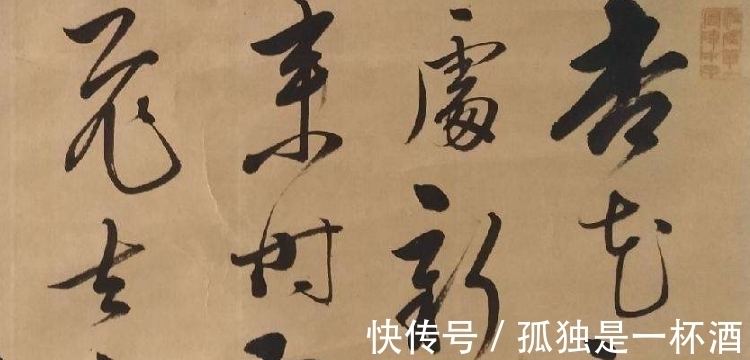 杏花
處新
時
飛去
快传号 / 孤独是一杯酒